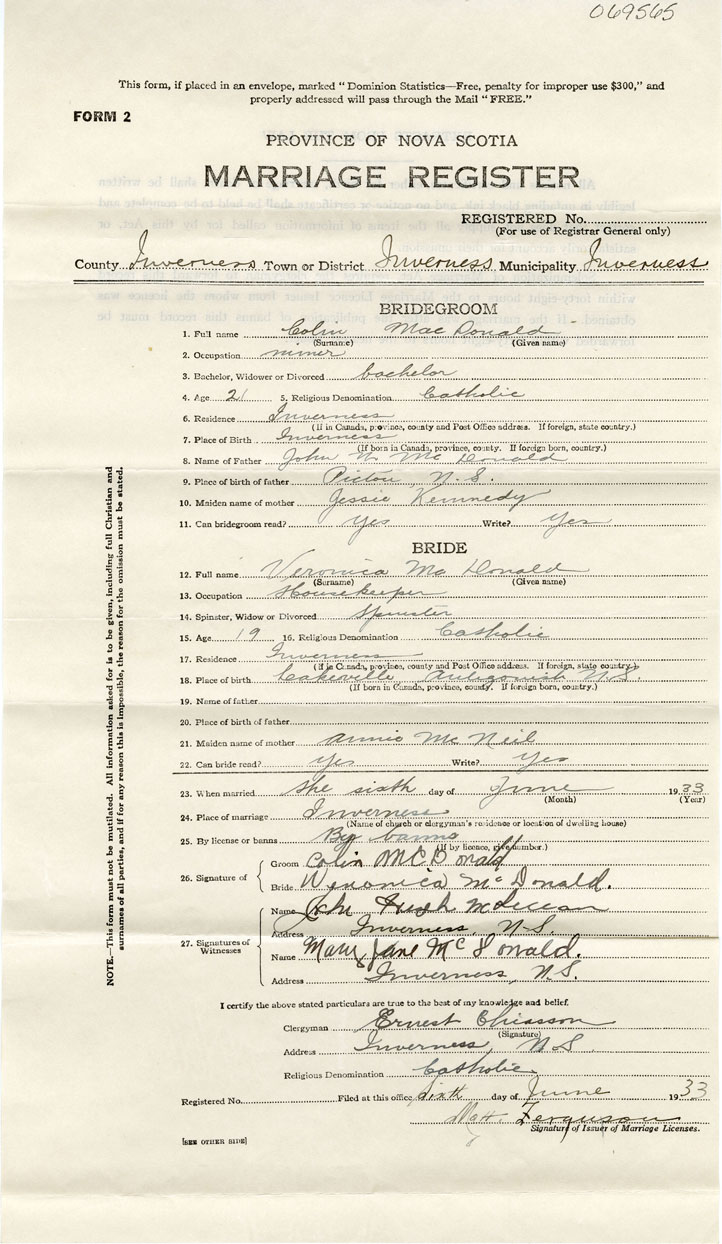 069565
This form, if placed in an envelope, marked "Dominion Statistics—Free, penalty for improper use $300," and
properly addressed will pass through the Mail "FREE."
FORM 2
PROVINCE OF NOVA SCOTIA
MARRIAGE REGISTER
REGISTERED No.
(For use of Registrar General only)
County Inverness Town or District Inverness Municipality Inverness
BRIDEGROOM
1. Full name Colin Mac Donald
(Surname) (Given name)
2. Occupation miner
3. Bachelor, Widower or Divorced bachelor
4. Age 21 5. Religious Denomination Catholic
6. Residence Inverness
(If in Canada, province, county and Post Office address. If foreign, state country.)
7. Place of Birth Inverness
(If born in Canada, province, county. If foreign born, country.)
8. Name of Father John Mc Donald
9. Place of birth of father Pictou N.S.
10. Maiden name of mother Jessie Kennedy
11. Can bridegroom read? Yes Write? Yes
BRIDE
12. Full name Veronica Mc Donald
(Surname) (Given name)
13. Occupation Housekeeper
14. Spinster, Widow or Divorced Spinster
15. Age 19 16. Religious Denomination Catholic
17. Residence Inverness
(If in Canada, province, county and Post Office address. If foreign, state country.)
18. Place of birth Antigonish N.S.
(If born in Canada, province, county. If foreign born, country.)
19. Name of father
20. Place of birth of father
21. Maiden name of mother Annie Mc Neil
22. Can bride read? Yes Write? Yes
23. When married the sixth day of June 1933
(Month) (Year)
24. Place of marriage Inverness
(Name of church or clergyman's residence or location of dwelling house)
25. By license or banns By banns
(If by licence, give number.)
26. Signature of
Groom Colin McDonald
Bride Veronica McDonald.
27. Signatures of Witnesses
Name John Hugh
Address Inverness N.S.
Name Mary Jane McDonald.
Address Inverness, N.S.
I certify the above stated particulars are true to the best of my knowledge and belief.
Clergyman Ernest Chiasson
(Signature)
Address Inverness, N.S.
Religious Denomination Catholic
Registered No. Filed at this office sixth day of June 1933
Ferguson
Signature of Issuer of Marriage Licenses.
[SEE OTHER SIDE]
NOTE.—This form must not be mutilated. All information asked for is to be given, including full Christian and
surnames of all parties, and if for any reason this is impossible, the reason for the omission must be stated.